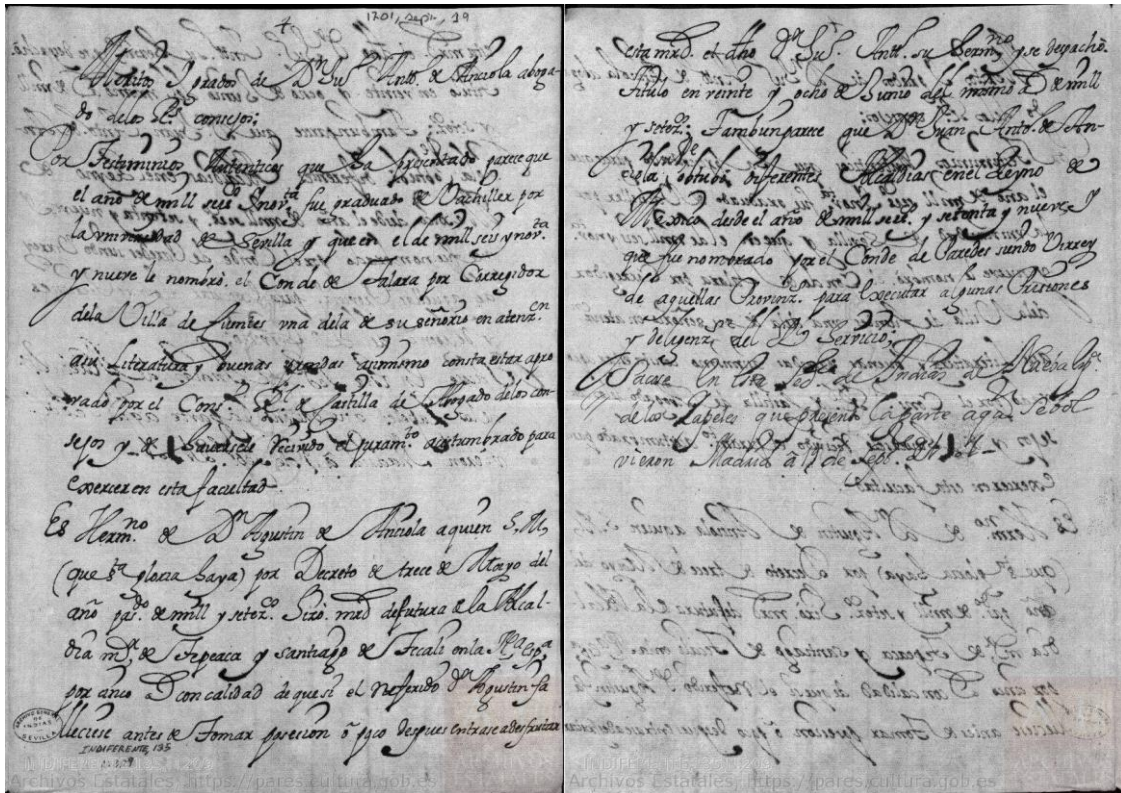 1701, Sept., 19
Meritos y grados de Dn Jul Antt. de Anciola aboga-
do de los Rs. consejos;
Por Testimonios Autenticos que ha presentado parece que
el año de mill seis Cs y nov.ta fue graduado de Bachiller por
la Vniversidad de Sevilla y que en el de mill seis y nov.ta
y nueve le nombró el Conde de Talara por Corregidor
dela Villa de fuentes vna dela de su señorio en atenz.on
asu Literatura y buenas prendas asimismo consta estar apro
vado por el Cons.o Rl de Castilla de Abogado delos con-
sejos y haversele recivido el juram.to acostumbrado para
exercer en esta facultad.
Es Herm.no de Dn Agustin de Anciola aquien S. M.
(que s.ta gloria haya) por Decreto de trece de Mayo del
año pas.do de mill y setez.os hizo mrd de futura de la Alcal-
dia m.or de Tepeaca y santiago de Tecali en la Na Espa
por cinco as con calidad de que si el referido Dn Agustin fa
lleciese antes de Tomar posesion ó poco despues entrase a desfrutar
ARCHIVO GENERAL DE INDIAS SEVILLA
INDIFERENTE, 135
esta mrd. el dho Dn Jul. Antt. su herm.no y se despachó
Titulo en veinte y ocho de Junio del mismo a de mill
y setez.s Tambien parece que D Juan Anto. de An-
ciola obtubo diferentes Alcaldias en el Reyno de
Mexico desde el año de mill seis.s y setenta y nueve y
que fue nombrado por el Conde de Paredes siendo Virrey
de aquellas Provinz.s para executar algunas Prisiones
y deligenz.s del Rl Servicio;
Sacose en esta Sec.a de Indias de Nueba Esp.a
de los Papeles que presentó la parte aqn se bol
vieron Madrid a 19 de Sep.e de 1701
INDIFERENTE, 135, N.209
Archivos Estatales, https://pares.cultura.gob.es
INDIFERENTE, 135, N.209
Archivos Estatales, https://pares.cultura.gob.es